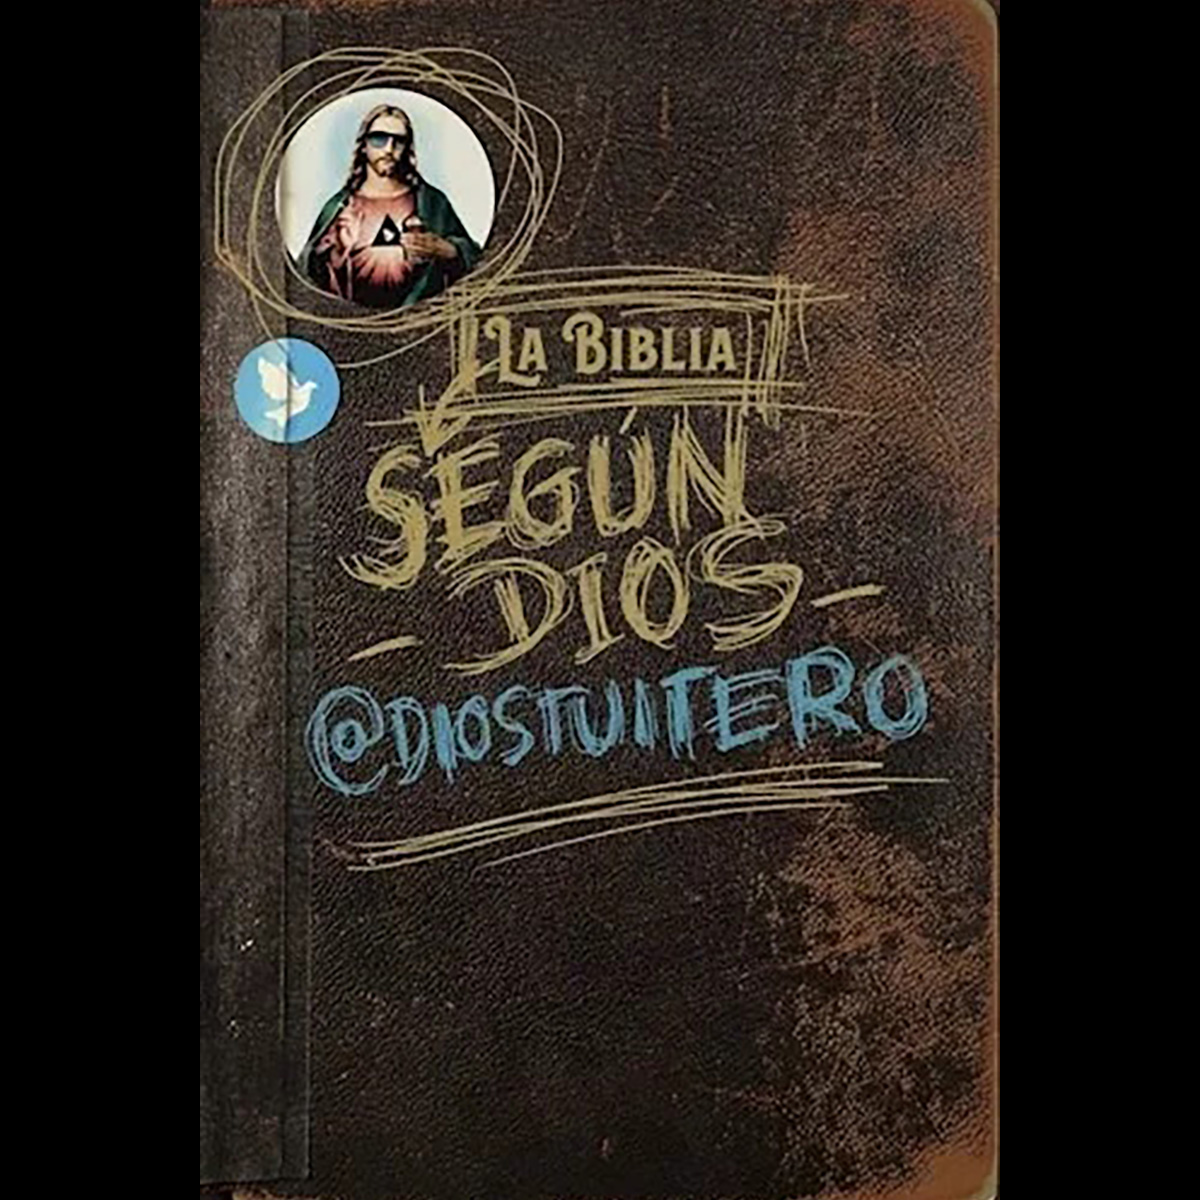 La Biblia
SEGÚN
- DIOS -
@DIOSTUITERO